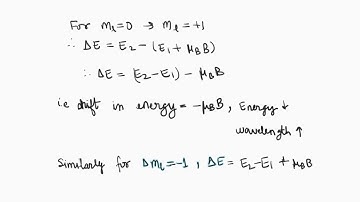 For mℓ=0 → mℓ=+1
∴ ΔE = E₂-(E₁+μ_B B)
∴ ΔE = (E₂-E₁) - μ_B B
i.e shift in energy = -μ_B B, Energy ↓
wavelength ↑
Similarly for Δmℓ=-1, ΔE = E₂-E₁ + μ_B B